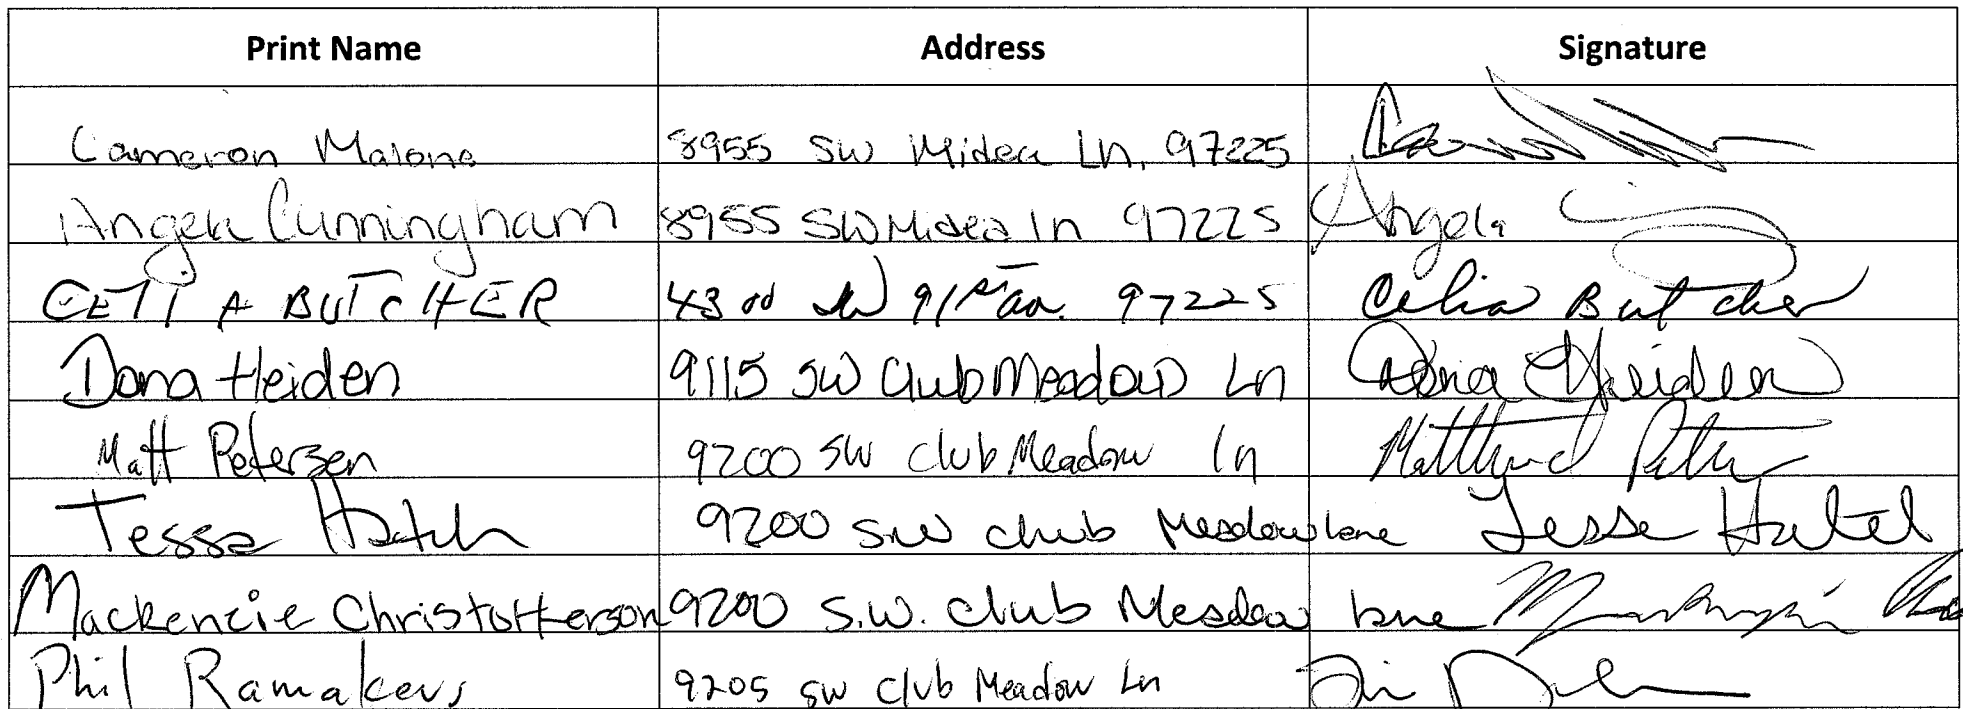 Print Name Address Signature
Cameron Malone 8955 SW Midea Ln, 97225
Angela Cunningham 8955 SW Midea ln 97225 Angela
BUTCHER SW 91st 97225 Celia Butcher
Dana Heiden 9115 SW Club Meadow Ln Dana Heiden
Matt Petersen 9200 SW Club Meadow ln
Tessa Hatch 9200 SW club Meadow lane
Mackenzie Christofferson 9200 S.W. club Meadow lane
Phil Ramakers 9205 SW Club Meadow Ln